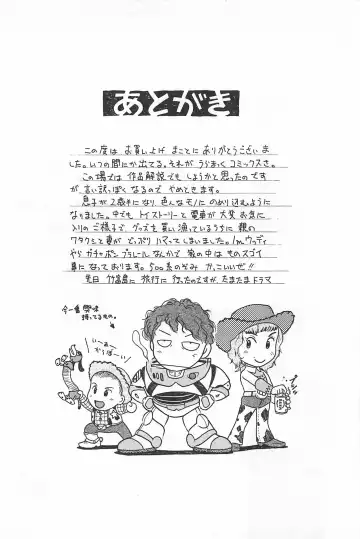 あとがき
この度は お買い上げ まことに ありがとうございま
した。いつの間にか出てる。それが うらまっく コミックスさ。
この場では 作品解説でも しようかと思ったのです
が 言い訳っぽく なるので やめときます。
息子が 2歳半になり 色んなモノに のめり込むように
なりました。中でも トイストーリーと 電車が 大変 お気に
入りの ご様子で、グッズを 買い漁っているうちに 親の
ワタクシと妻が どっぷり ハマってしまいました。1mウッディ
やら ガチャポン プラレール なんかで 家の中は ものスゴイ
事になっております。500系のぞみ かっこいいぜ!!
先日 竹富島に 旅行に 行ったのですが、たまたま ドラマ
今一番 興味
持ってるもの。